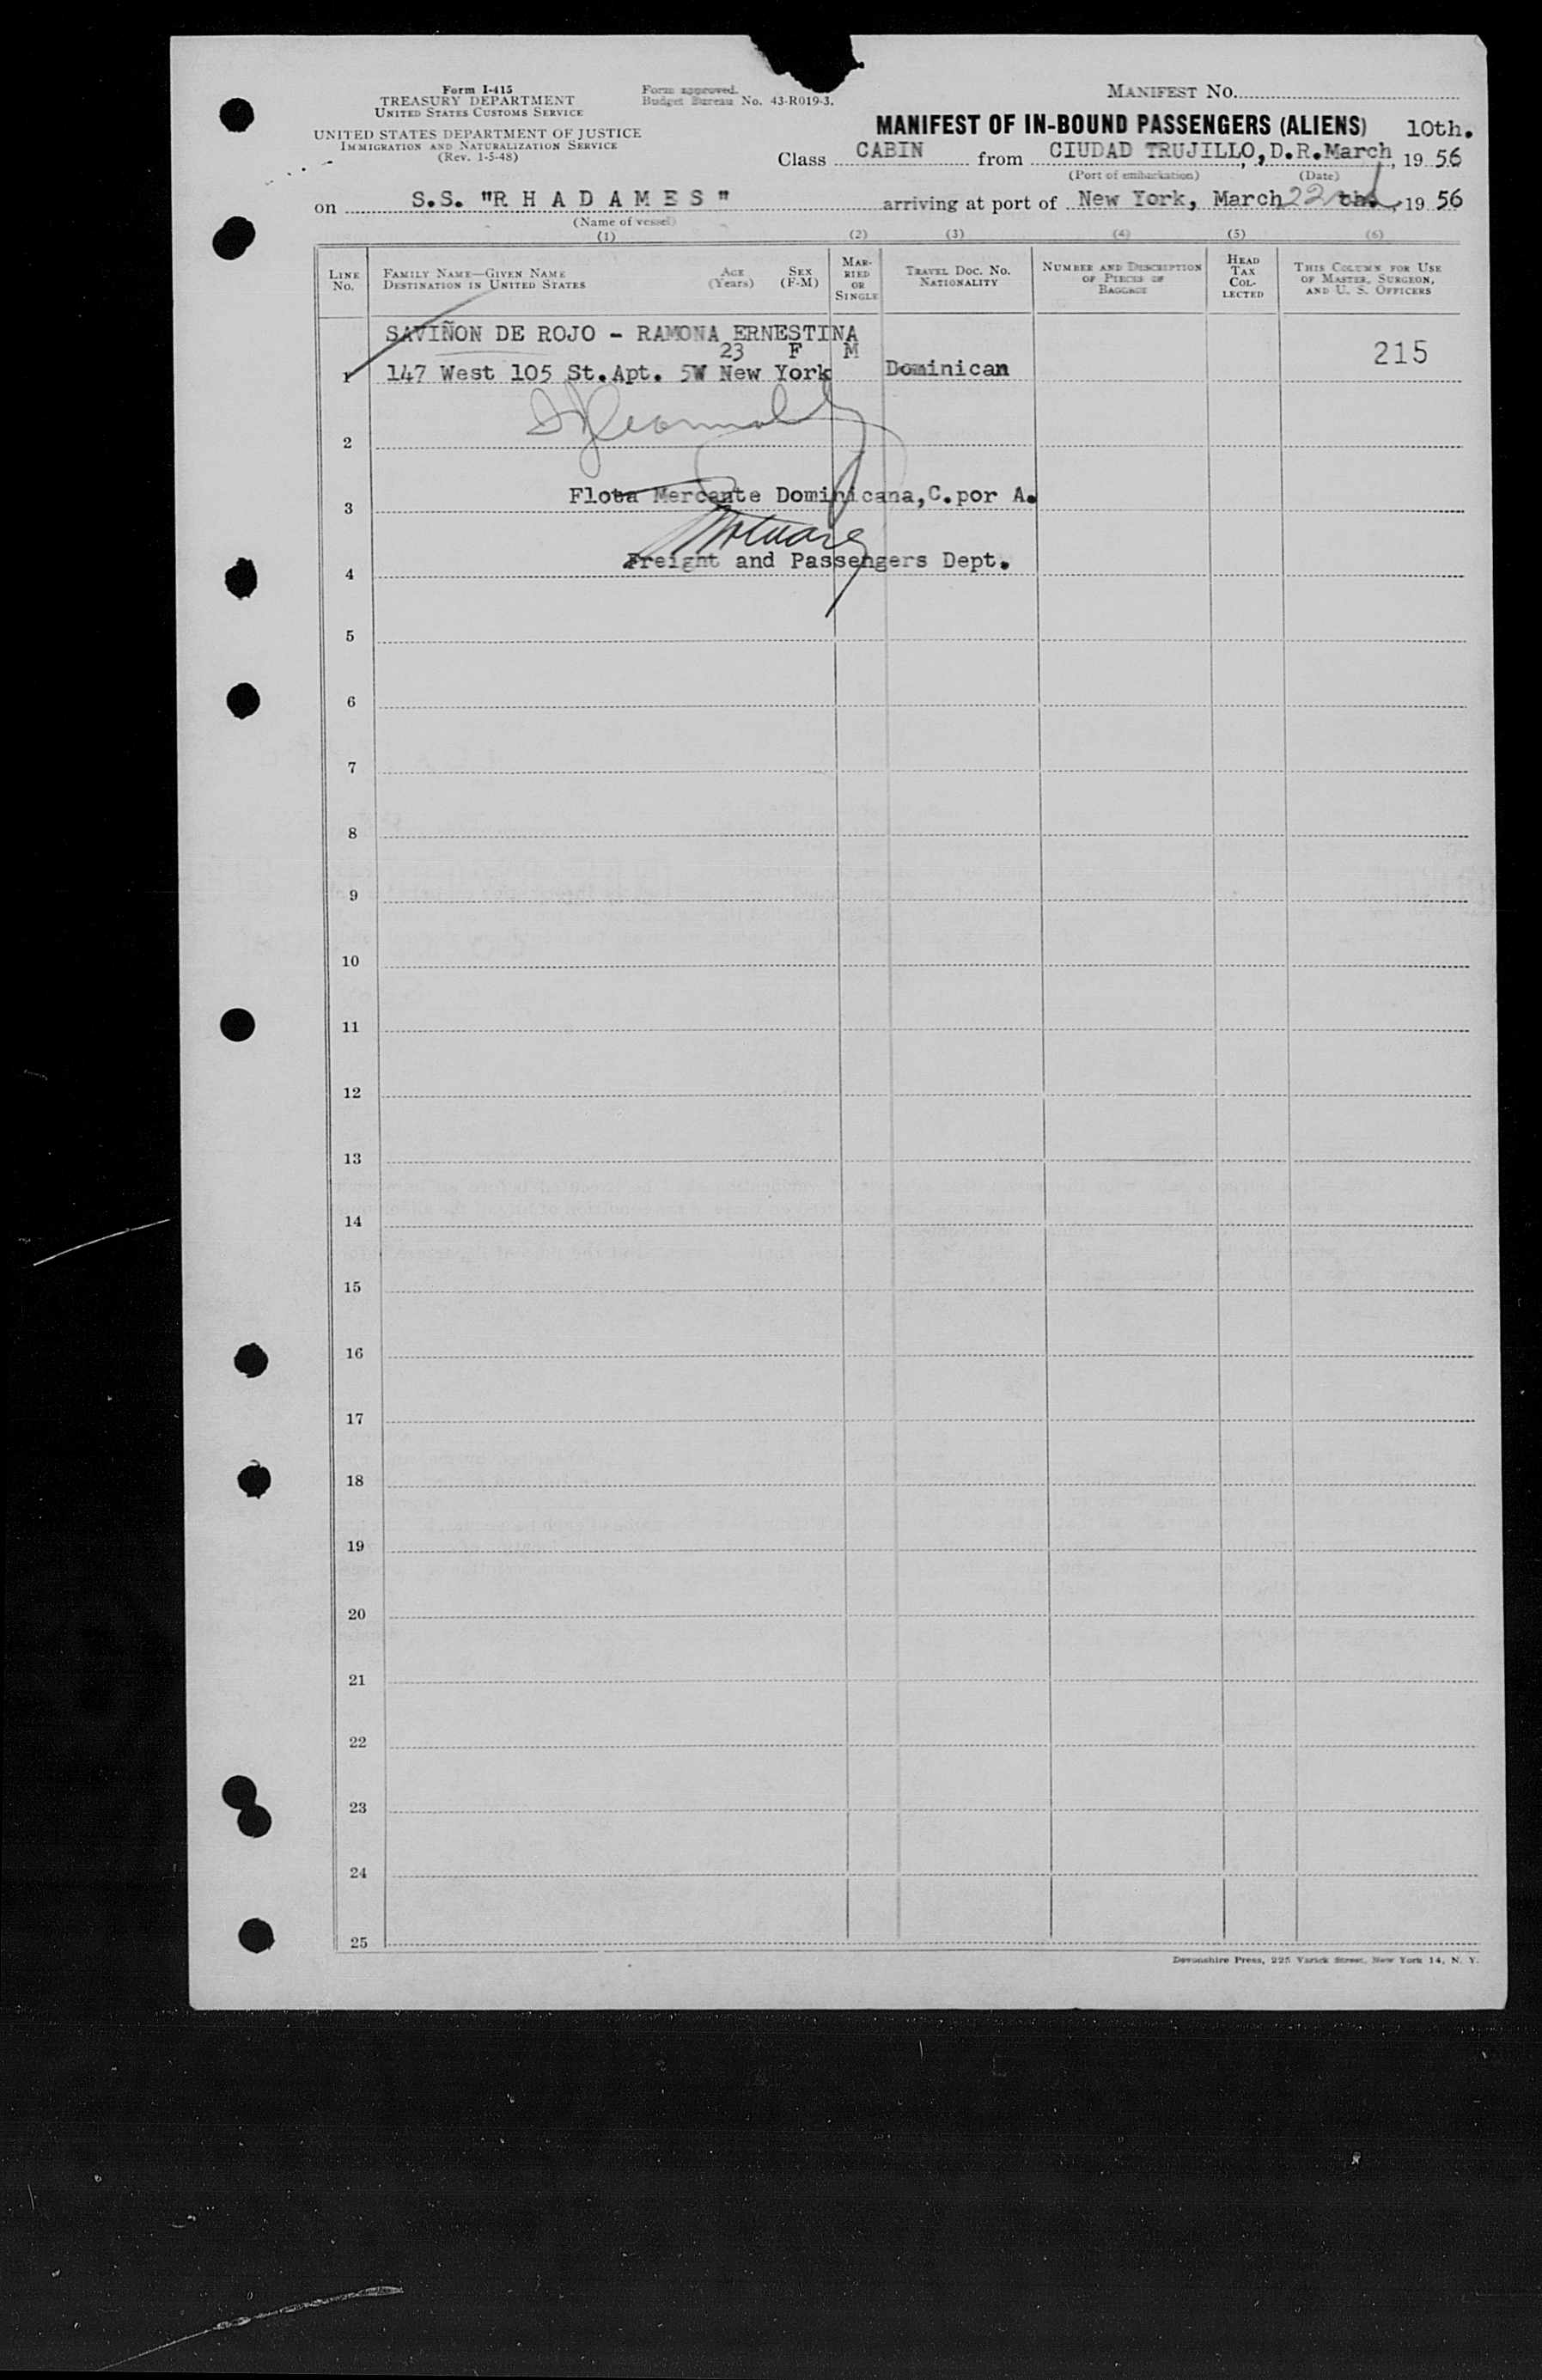 Form I-415
TREASURY DEPARTMENT
UNITED STATES CUSTOMS SERVICE
UNITED STATES DEPARTMENT OF JUSTICE
IMMIGRATION AND NATURALIZATION SERVICE
(Rev. 1-5-48)
Form approved.
Budget Bureau No. 43-R019-3.
MANIFEST NO.
MANIFEST OF IN-BOUND PASSENGERS (ALIENS) 10th.
Class CABIN from CIUDAD TRUJILLO, D.R. March, 19 56
(Port of embarkation) (Date)
on S.S. "R H A D A M E S" arriving at port of New York, March 22nd, 19 56
(Name of vessel)
(1) (2) (3) (4) (5) (6)
LINE NO.
FAMILY NAME—GIVEN NAME
DESTINATION IN UNITED STATES
AGE (Years)
SEX (F-M)
MARRIED OR SINGLE
TRAVEL DOC. NO.
NATIONALITY
NUMBER AND DESCRIPTION OF PIECES OF BAGGAGE
HEAD TAX COLLECTED
THIS COLUMN FOR USE OF MASTER, SURGEON, AND U. S. OFFICERS
SAVIÑON DE ROJO - RAMONA ERNESTINA
23 F M
215
1 147 West 105 St. Apt. 5W New York Dominican
2
Flota Mercante Dominicana, C. por A.
3
Freight and Passengers Dept.
4
5
6
7
8
9
10
11
12
13
14
15
16
17
18
19
20
21
22
23
24
25
Devonshire Press, 225 Varick Street, New York 14, N. Y.